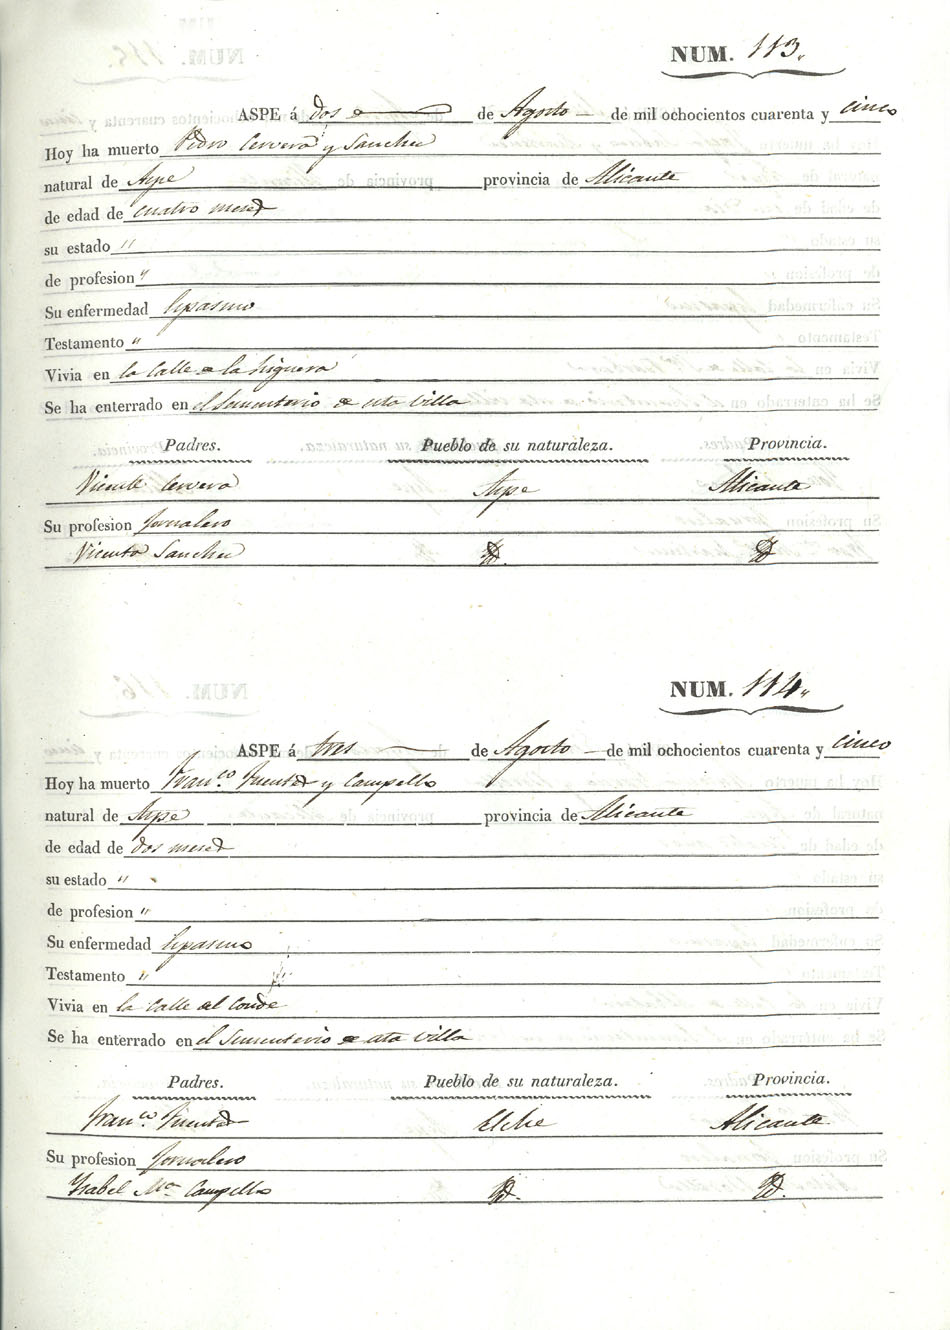 NUM. 113.
ASPE á dos de Agosto de mil ochocientos cuarenta y cinco
Hoy ha muerto Pedro Cervera y Sanchez
natural de Aspe provincia de Alicante
de edad de cuatro meses
su estado "
de profesion "
Su enfermedad Espasmo
Testamento "
Vivia en la Calle de la higuera
Se ha enterrado en el Sementerio de esta Villa
Padres. Pueblo de su naturaleza. Provincia.
Vicente Cervera Aspe Alicante
Su profesion Jornalero
Vicenta Sanchez Yd. Yd
NUM. 114.
ASPE á tres de Agosto de mil ochocientos cuarenta y cinco
Hoy ha muerto Franco. Fuentes y Campello
natural de Aspe provincia de Alicante
de edad de dos meses
su estado "
de profesion "
Su enfermedad Espasmo
Testamento "
Vivia en la Calle del Conde
Se ha enterrado en el Sementerio de esta Villa
Padres. Pueblo de su naturaleza. Provincia.
Franco. Fuentes Elche Alicante
Su profesion Jornalero
Ysabel Ma Campello Yd. Yd.